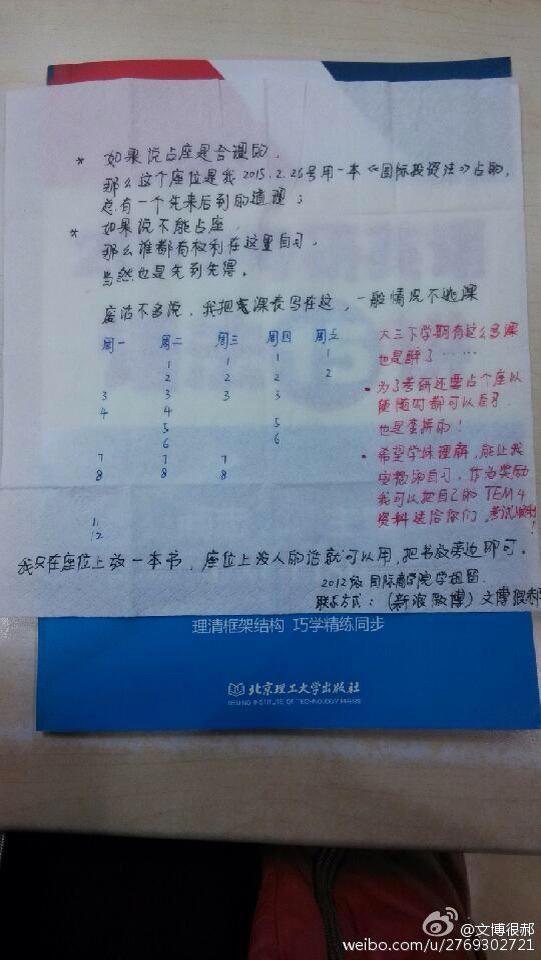 * 如果说占座是合理的，
那么这个座位是我2015.2.26号用一本《国际投资法》占的，
总有一个先来后到的道理；
* 如果说不能占座，
那么谁都有权利在这里自习，
当然也是先到先得。
废话不多说，我把课表写在这，一般情况不逃课
周一 周二 周三 周四 周五
1 1 1 1
2 2 2 2
3 3 3 3
4 4
5 5
6 6
7 7 7
8 8 8
11
12
大三下学期有这么多课
也是醉了……
• 为了考研还要占个座以
随时都可以自习
也是蛮拼的！
• 希望学妹理解，能让我
安稳的自习，作为奖励
我可以把自己的TEM4
资料送给你们，考试顺利！
我只在座位上放一本书，座位上没人的话就可以用，把书放旁边即可。
2012级 国际商学院学姐留
联系方式：（新浪微博）文博很郝
理清框架结构 巧学精练同步
北京理工大学出版社
BEIJING INSTITUTE OF TECHNOLOGY PRESS
@文博很郝
weibo.com/u/2769302721